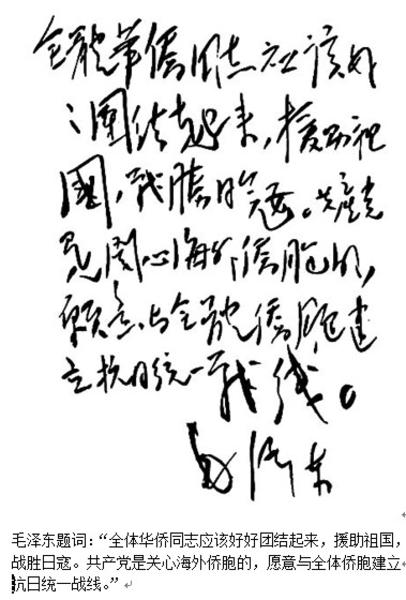 全體華僑同志应该好
〻團结起来,援助祖
國,战勝日寇。共產党
是関心海外僑胞的,
願意与全體僑胞建
立抗日统一战线。
毛泽东
毛泽东题词:“全体华侨同志应该好好团结起来,援助祖国,
战胜日寇。共产党是关心海外侨胞的,愿意与全体侨胞建立
抗日统一战线。”